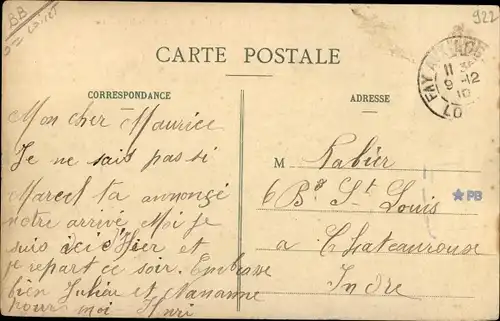 BB
Loiret
922
CARTE POSTALE
FAY AUX LOGES
11 35
9 -12
10
LO
CORRESPONDANCE
ADRESSE
Mon cher Maurice
Je ne sait pas si
Marcel ta annongé
notre arrivé Moi je
suis ici d'Hier et
je repart ce soir. Embrasse
bien Julien et Nananne
pour moi Henri
M Rabier
6 Bd St Louis
a Chateauroux
Indre
PB